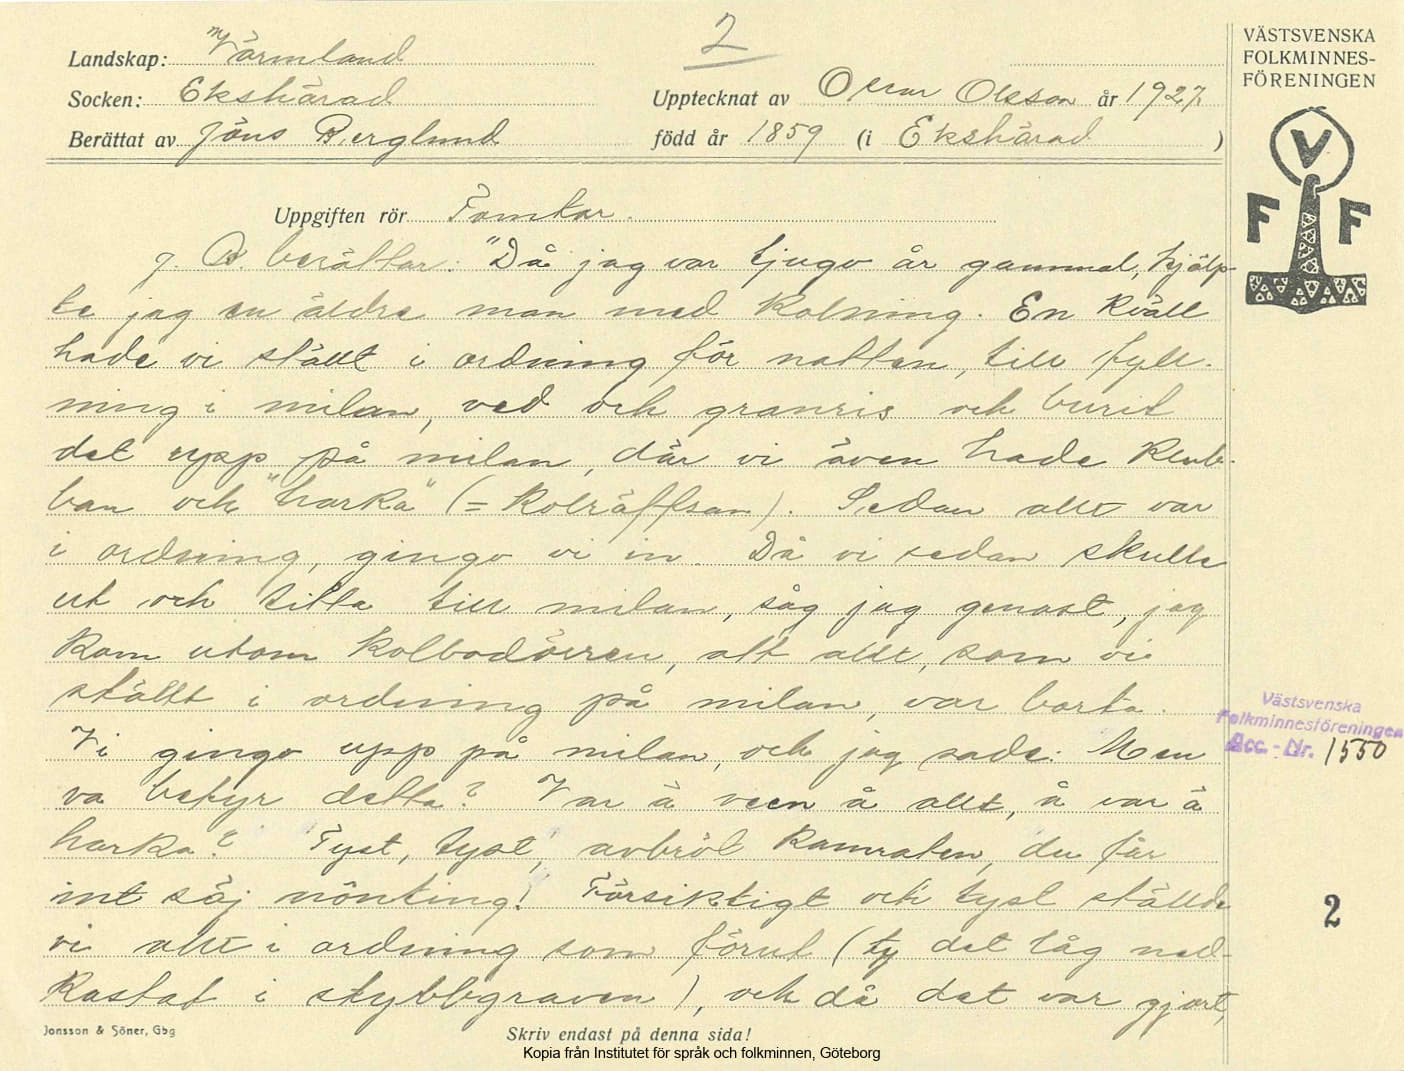 2
Landskap: Värmland
Socken: Ekshärad
Upptecknat av Oscar Olsson år 1927.
Berättat av Jöns Berglund
född år 1859 (i Ekshärad )
VÄSTSVENSKA
FOLKMINNES-
FÖRENINGEN
V
F F
Uppgiften rör Tomtar.
J. B. berättar: "Då jag var tjugo år gammal, hjälp-
te jag en äldre man med kolning. En kväll
hade vi ställt i ordning för natten, till fyll-
ning i milan, ved och granris och burit
det upp på milan, där vi även hade klub-
ban och "harka" (= kolräffsan). Sedan allt var
i ordning, gingo vi in. Då vi sedan skulle
ut och titta till milan, såg jag genast, jag
kom utom kolbodörren, att allt, som vi
ställt i ordning på milan, var borta.
Vi gingo upp på milan, och jag sade: Men
va betyr detta? Var ä veen å allt, å var ä
harka? 'Tyst, tyst', avbröt kamraten, du får
int säj nönting! Försiktigt och tyst ställde
vi allt i ordning som förut (ty det låg ned-
kastat i stybbgraven), och då det var gjort,
Västsvenska
Folkminnesföreningen
Acc.-Nr. 1550
2
Jonsson & Söner, Gbg
Skriv endast på denna sida!
Kopia från Institutet för språk och folkminnen, Göteborg